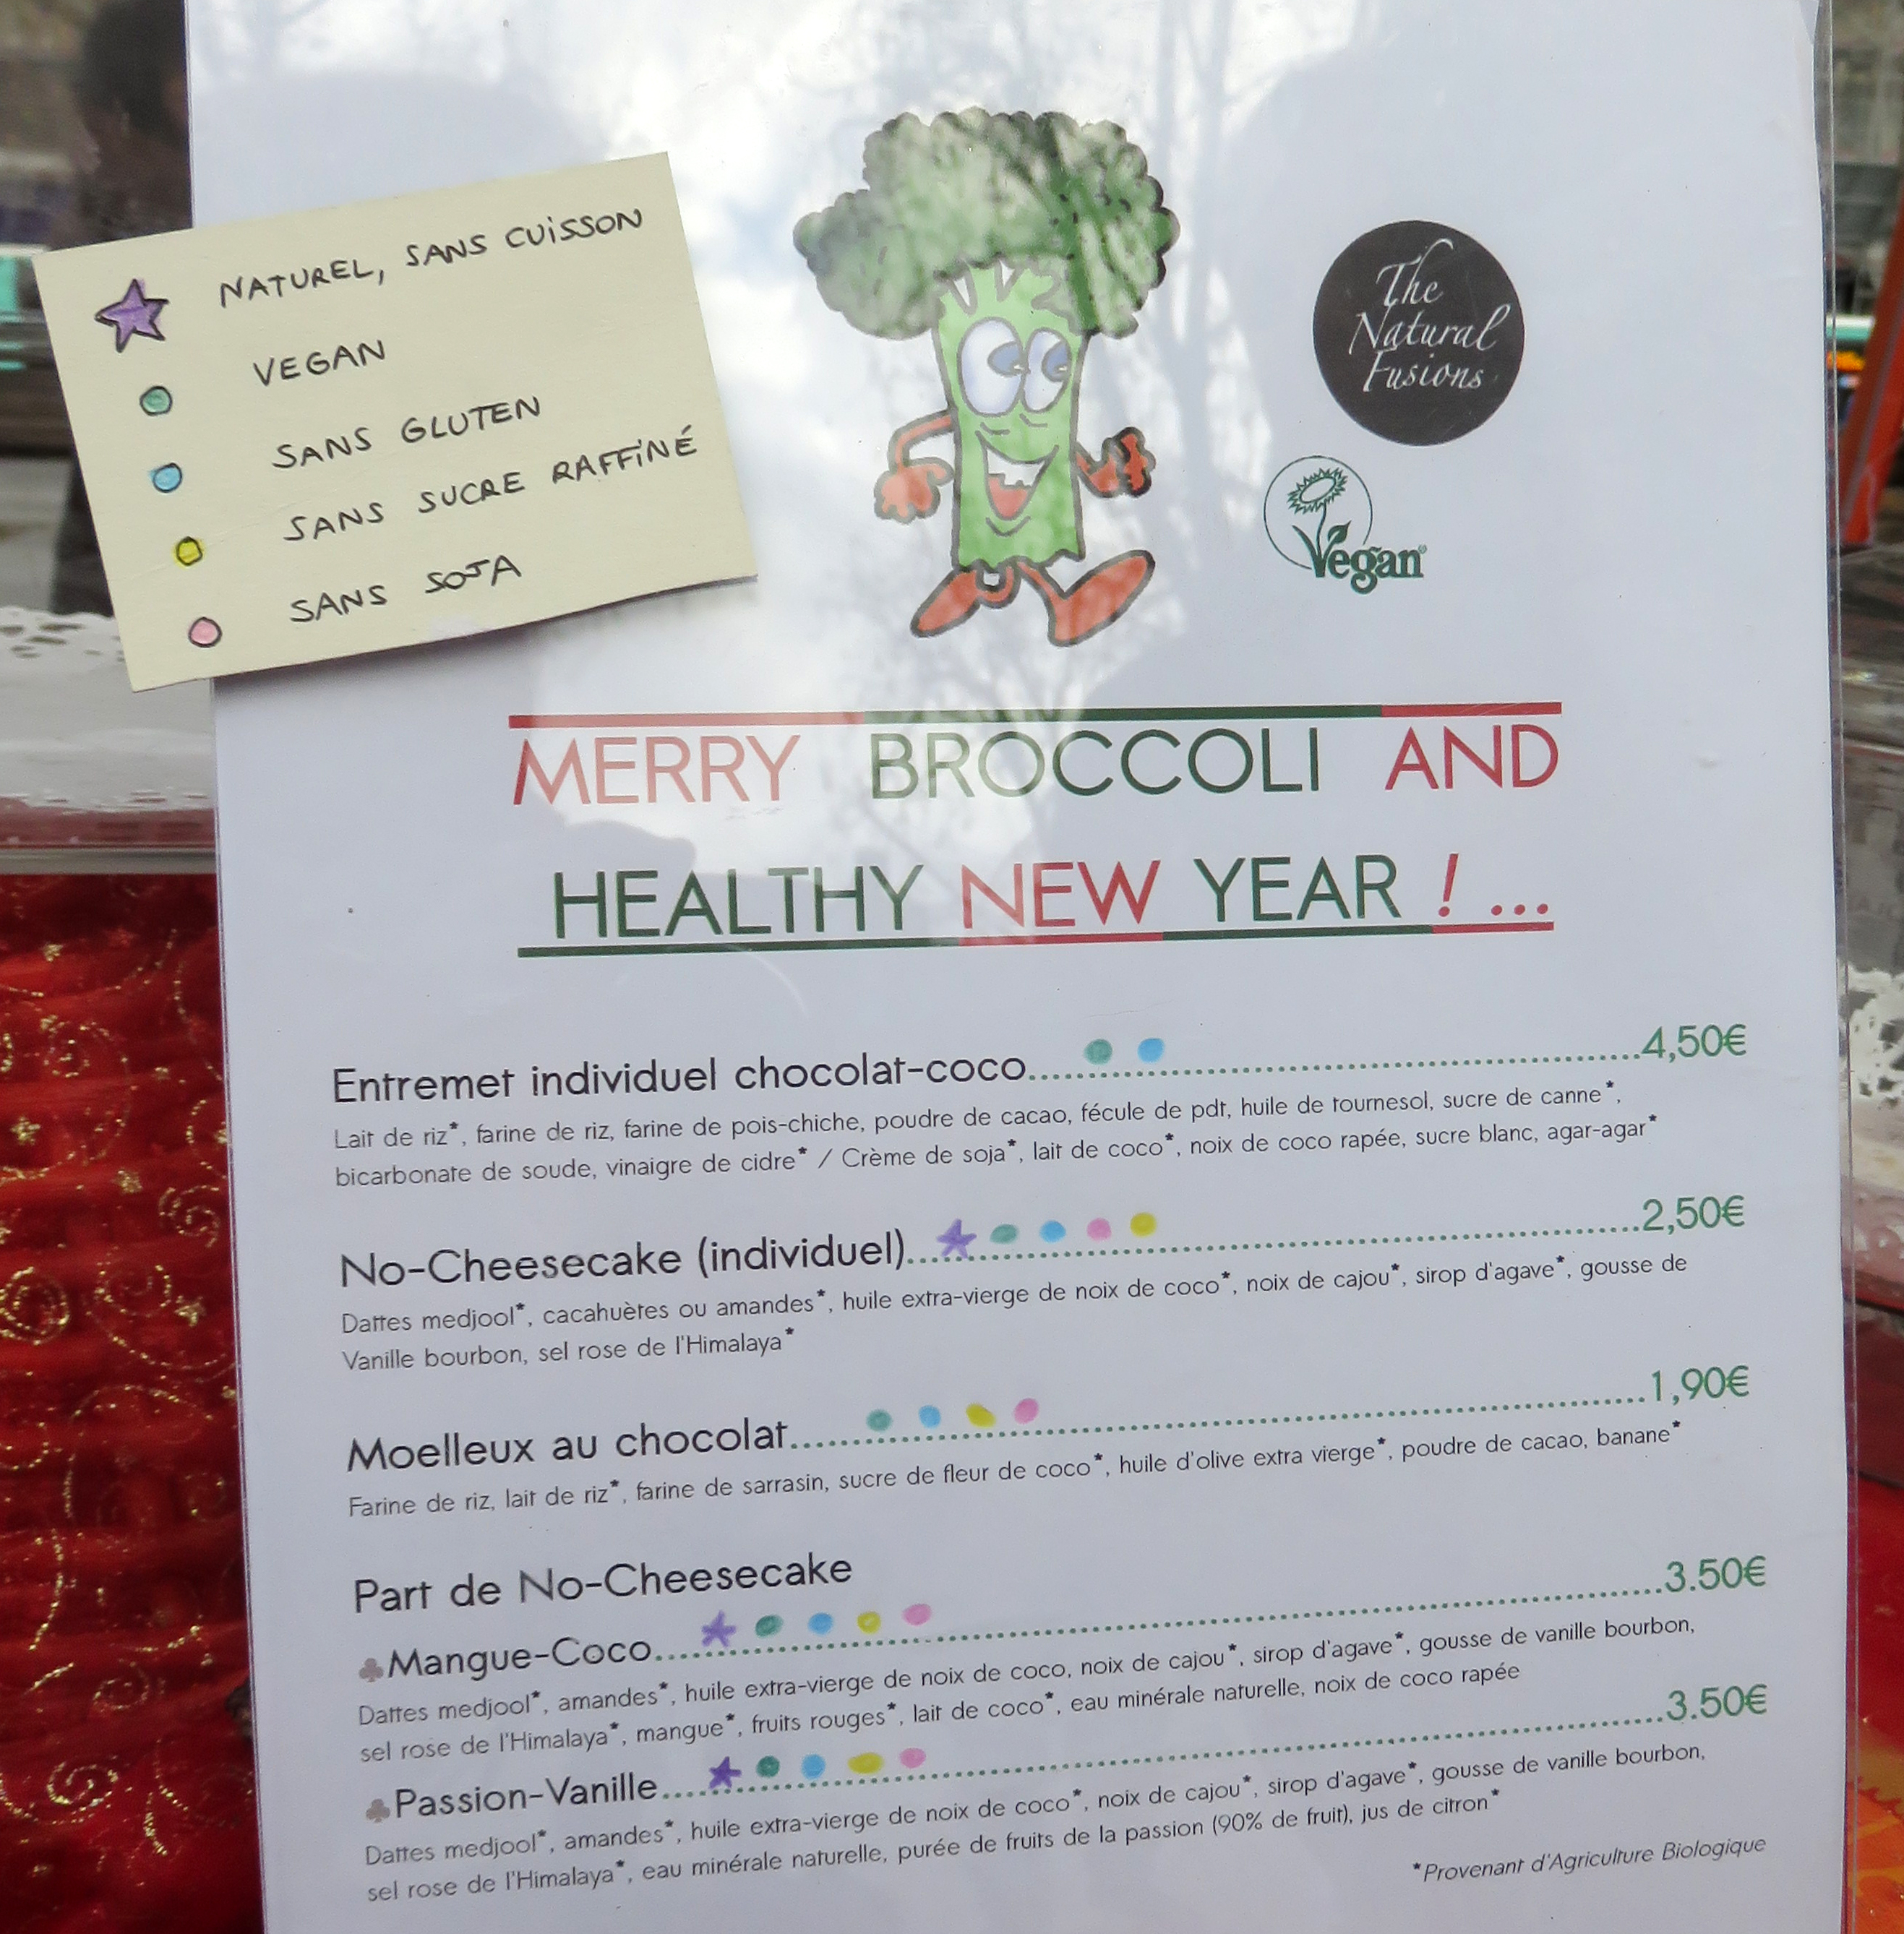 NATUREL, SANS CUISSON
VEGAN
SANS GLUTEN
SANS SUCRE RAFFINÉ
SANS SOJA
The
Natural
Fusions
Vegan
MERRY BROCCOLI AND
HEALTHY NEW YEAR ! ...
Entremet individuel chocolat-coco....4,50€
Lait de riz*, farine de riz, farine de pois-chiche, poudre de cacao, fécule de pdt, huile de tournesol, sucre de canne*,
bicarbonate de soude, vinaigre de cidre* / Crème de soja*, lait de coco*, noix de coco rapée, sucre blanc, agar-agar*
No-Cheesecake (individuel)....2,50€
Dattes medjool*, cacahuètes ou amandes*, huile extra-vierge de noix de coco*, noix de cajou*, sirop d'agave*, gousse de
Vanille bourbon, sel rose de l'Himalaya*
Moelleux au chocolat....1,90€
Farine de riz, lait de riz*, farine de sarrasin, sucre de fleur de coco*, huile d'olive extra vierge*, poudre de cacao, banane*
Part de No-Cheesecake
♣Mangue-Coco....3.50€
Dattes medjool*, amandes*, huile extra-vierge de noix de coco, noix de cajou*, sirop d'agave*, gousse de vanille bourbon,
sel rose de l'Himalaya*, mangue*, fruits rouges*, lait de coco*, eau minérale naturelle, noix de coco rapée
♣Passion-Vanille....3.50€
Dattes medjool*, amandes*, huile extra-vierge de noix de coco*, noix de cajou*, sirop d'agave*, gousse de vanille bourbon,
sel rose de l'Himalaya*, eau minérale naturelle, purée de fruits de la passion (90% de fruit), jus de citron*
*Provenant d'Agriculture Biologique